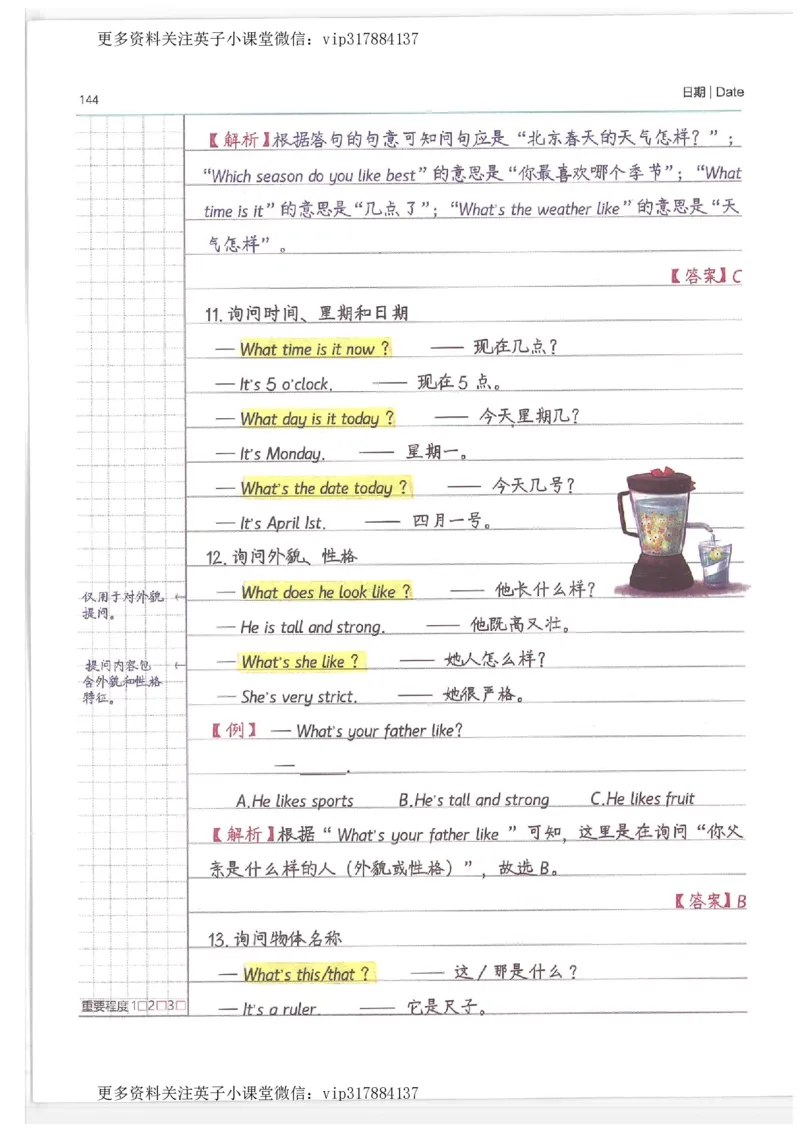 更多资料关注英子小课堂微信：vip317884137
144
日期 | Date
【解析】根据答句的句意可知问句应是“北京春天的天气怎样？”；
“Which season do you like best”的意思是“你最喜欢哪个季节”；“What
time is it”的意思是“几点了”；“What's the weather like”的意思是“天
气怎样”。
【答案】C
11. 询问时间、星期和日期
— What time is it now ? —— 现在几点？
— It's 5 o'clock. —— 现在5点。
— What day is it today ? —— 今天星期几？
— It's Monday. —— 星期一。
— What's the date today ? —— 今天几号？
— It's April 1st. —— 四月一号。
12. 询问外貌、性格
仅用于对外貌
提问。
— What does he look like ? —— 他长什么样？
— He is tall and strong. —— 他既高又壮。
提问内容包
含外貌和性格
特征。
— What's she like ? —— 她人怎么样？
— She's very strict. —— 她很严格。
【例】 — What's your father like?
— ______.
A.He likes sports B.He's tall and strong C.He likes fruit
【解析】根据“ What's your father like ”可知，这里是在询问“你父
亲是什么样的人（外貌或性格）”，故选B。
【答案】B
13. 询问物体名称
— What's this/that ? —— 这/那是什么？
— It's a ruler. —— 它是尺子。
重要程度 1□2□3□
更多资料关注英子小课堂微信：vip317884137